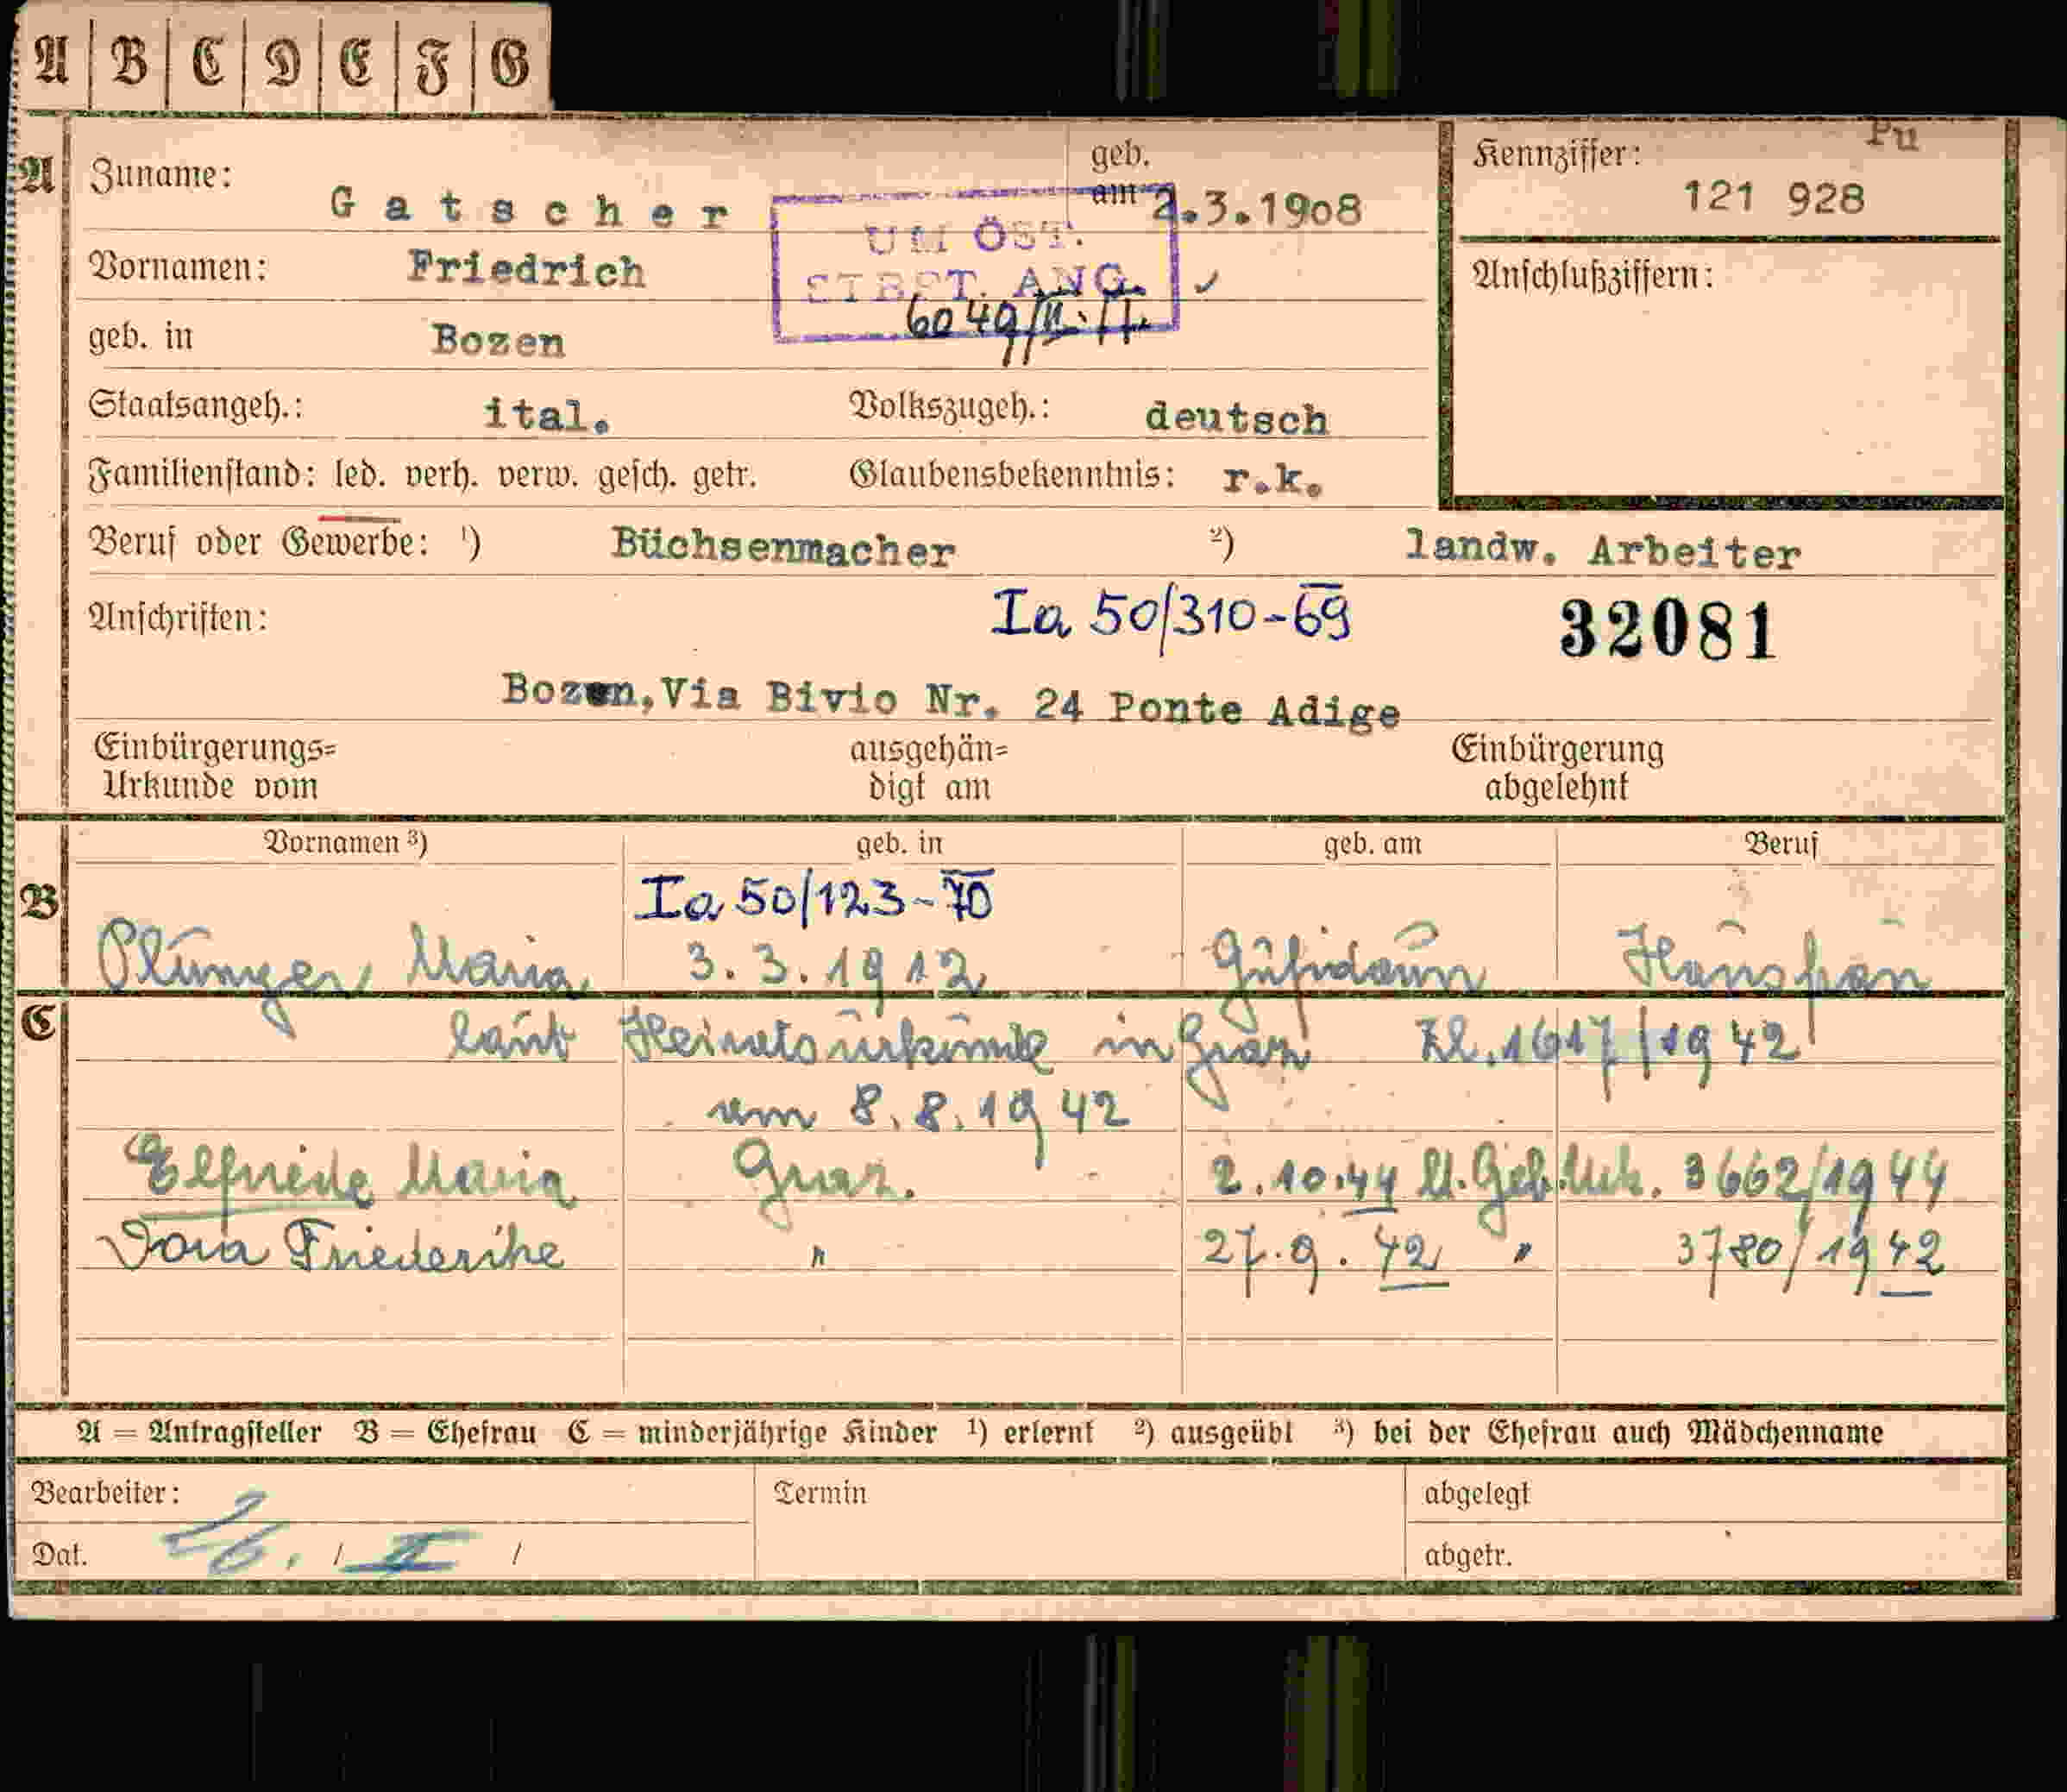 A B C D E F G
Pu
A Zuname: Gatscher geb. am 2.3.1908 Kennziffer: 121 928
UM ÖST. STBST. ANG.
Vornamen: Friedrich Anschlußziffern:
6049/II.
geb. in Bozen
Staatsangeh.: ital. Volkszugeh.: deutsch
Familienstand: led. verh. verw. gesch. getr. Glaubensbekenntnis: r.k.
Beruf oder Gewerbe: ¹) Büchsenmacher ²) landw. Arbeiter
Anschriften: Ia 50/310-69 32081
Bozen, Via Bivio Nr. 24 Ponte Adige
Einbürgerungs= ausgehän= Einbürgerung
Urkunde vom digt am abgelehnt
Vornamen ³) geb. in geb. am Beruf
B Ia 50/123-70
Plunger Maria 3.3.1912 Gufidaun Hausfrau
C laut Heiratsurkunde in Graz Zl. 1617/1942
vom 8.8.1942
Elfriede Maria Graz. 2.10.44 lt. Geb. Urk. 3662/1944
Dora Friederike " 27.9.42 " 3780/1942
A = Antragsteller B = Ehefrau C = minderjährige Kinder ¹) erlernt ²) ausgeübt ³) bei der Ehefrau auch Mädchenname
Bearbeiter: Termin abgelegt
Dat. 26. / II / abgetr.